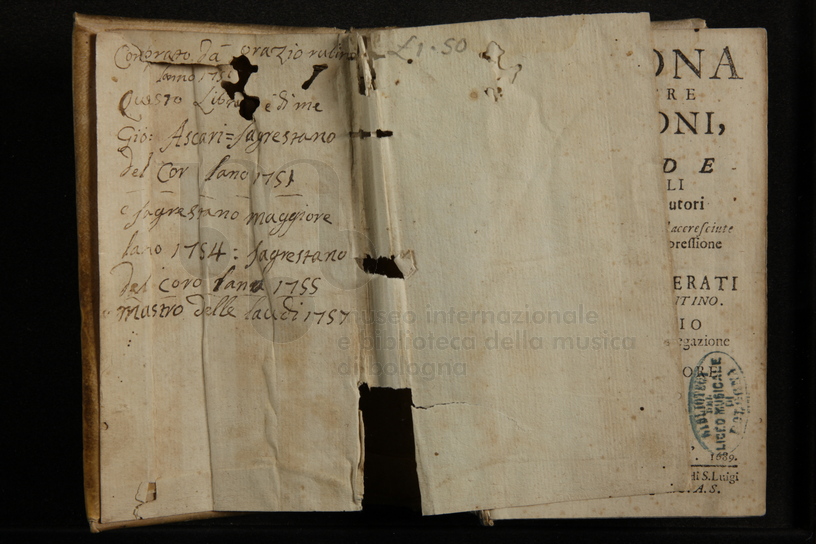 Conprato da orazio
lano 175
Questo Libro è di me
Gio: Ascari = sagrestano
del Cor lano 1751
e sagrestano maggiore
lano 1754: sagrestano
del coro lano 1755
mastro delle laudi 1757
£1.50
ONA
RE
ONI,
DE
LI
utori
accresciute
pressione
ERATI
NTINO.
IO
egazione
ORE
BIBLIOTECA
DEL
LICEO MUSICALE
DI
BOLOGNA
. 1689.
di S. Luigi
A.S.
museo internazionale
e biblioteca della musica
di bologna